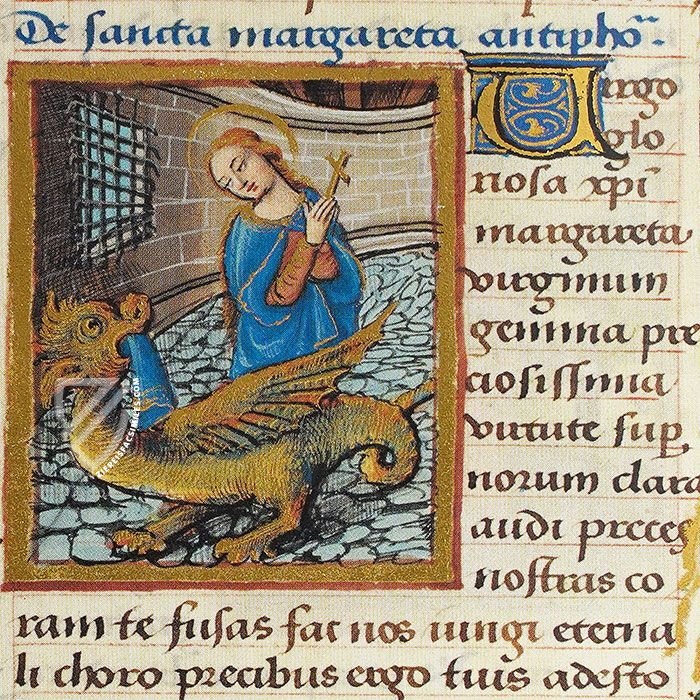 De sancta margareta antipho.
Uirgo
glo
riosa xpi
margareta
virginum
gemma pre
ciosissima
virtute sup
norum clara
audi preces
nostras co
ram te fusas fac nos iungi eterna
li choro precibus ergo tuis adesto
ZIEREIS FACSIMILES.COM